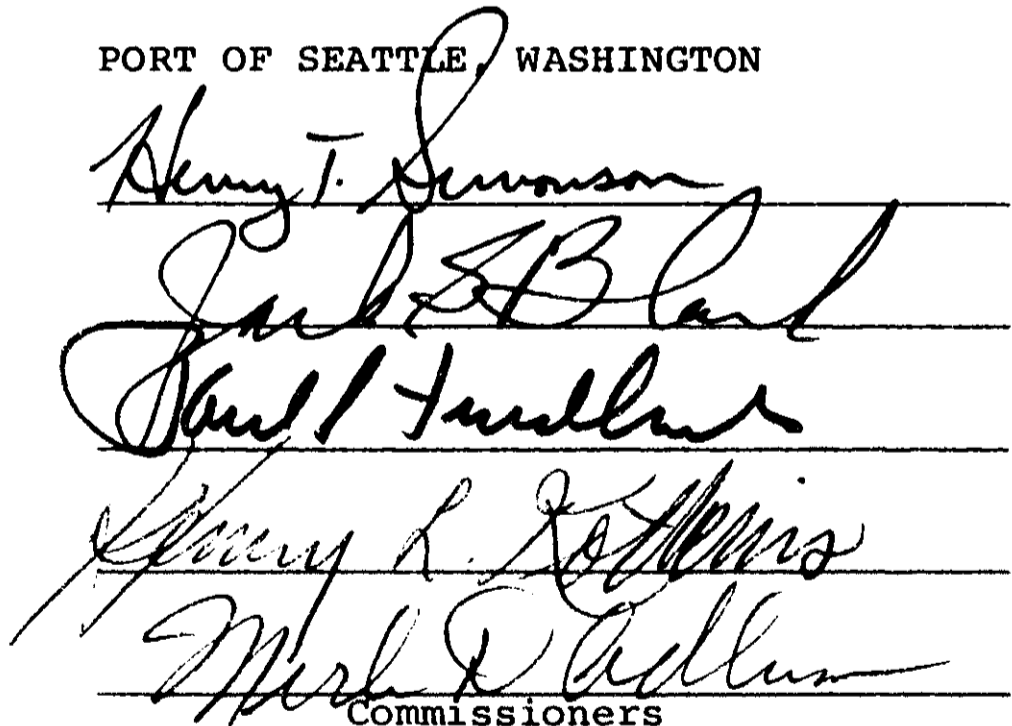 PORT OF SEATTLE, WASHINGTON
Henry T. Simonson
Jack S Block
Paul S Friedlander
Henry L. Kotkins
Merle D Adlum
Commissioners